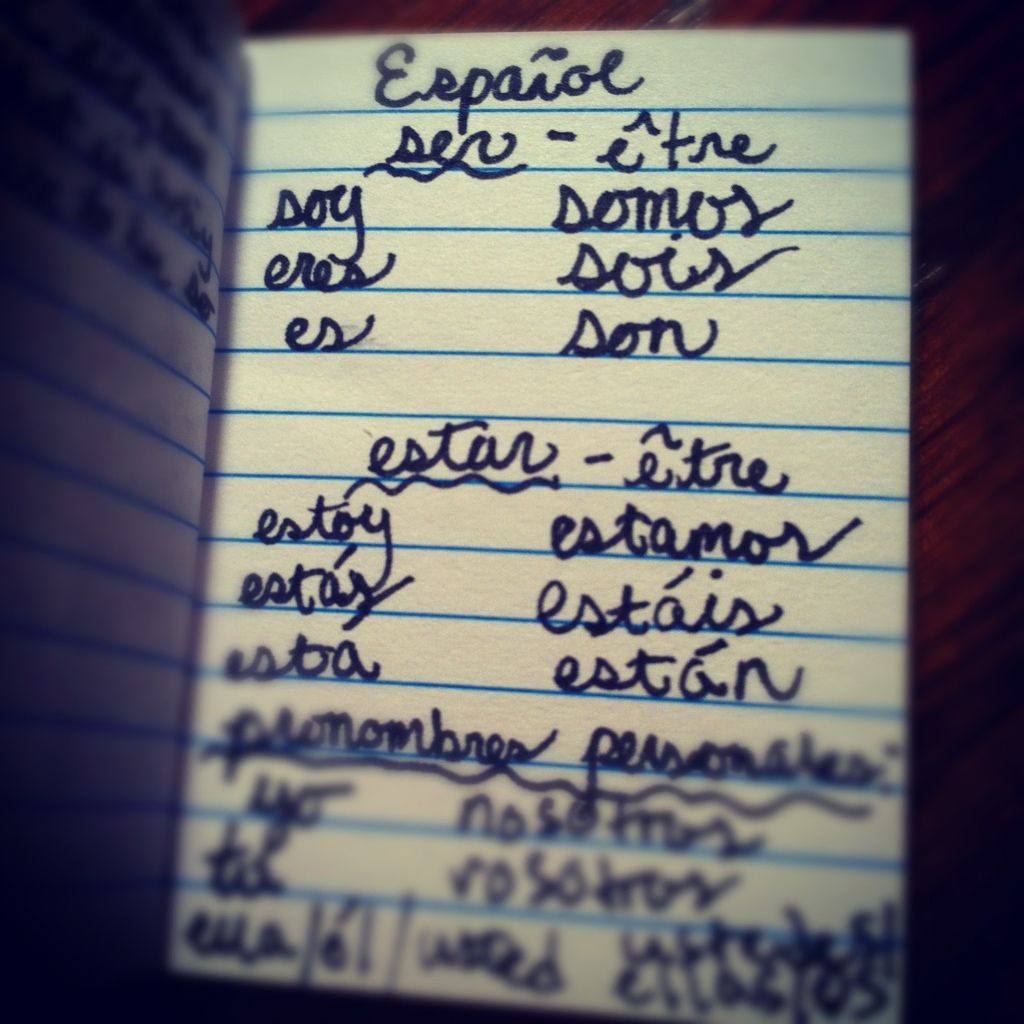 Español
ser - être
soy somos
eres sois
es son
estar - être
estoy estamos
estás estáis
está están
pronombres personales:
yo nosotros
tú vosotros
ella/él/usted ustedes/ellas/os